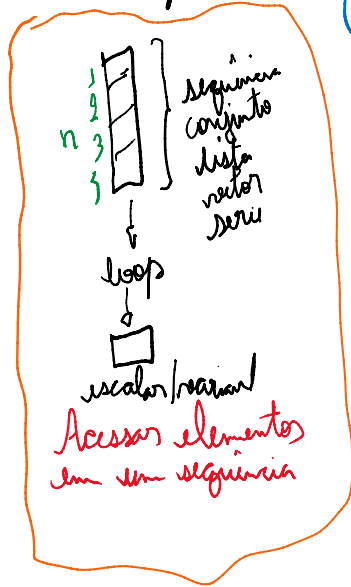 1
2
n 3
sequência
conjunto
lista
vector
serie
loop
escalar/
Acessar elementos
em um sequência